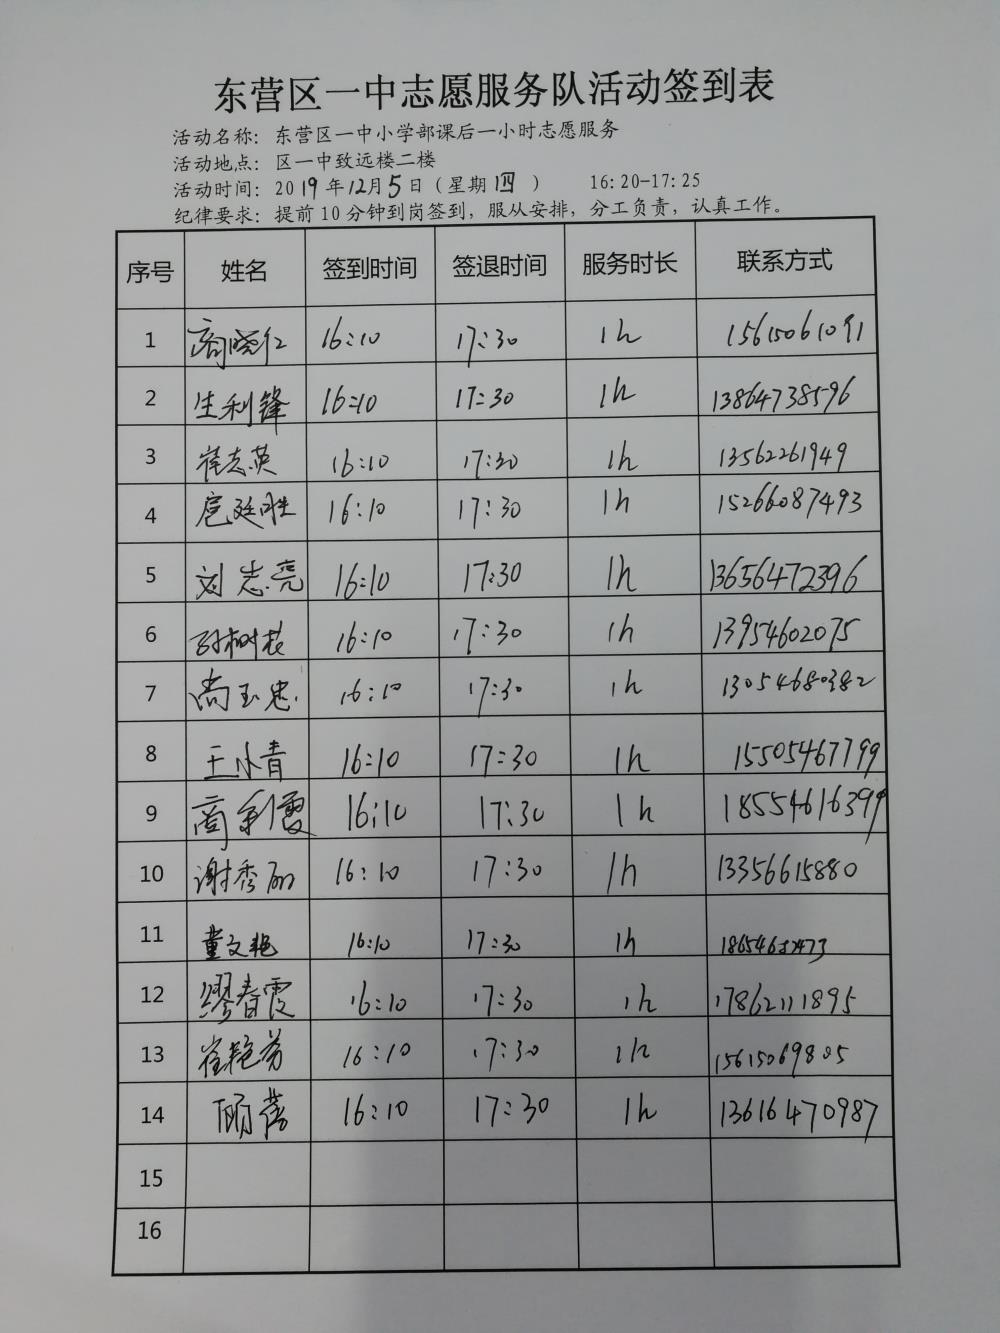 东营区一中志愿服务队活动签到表
活动名称：东营区一中小学部课后一小时志愿服务
活动地点：区一中致远楼二楼
活动时间：2019年12月5日（星期四） 16:20-17:25
纪律要求：提前10分钟到岗签到，服从安排，分工负责，认真工作。
序号 姓名 签到时间 签退时间 服务时长 联系方式
1 商晓红 16:10 17:30 1h 15615061091
2 生利锋 16:10 17:30 1h 13864738596
3 崔志英 16:10 17:30 1h 13562261949
4 扈廷胜 16:10 17:30 1h 15266087493
5 刘志亮 16:10 17:30 1h 13656472396
6 孙树花 16:10 17:30 1h 13954602075
7 尚玉忠 16:10 17:30 1h 13054680382
8 王小青 16:10 17:30 1h 15505467799
9 商利霞 16:10 17:30 1h 18554616399
10 谢秀丽 16:10 17:30 1h 13356615880
11 董文艳 16:10 17:30 1h
12 缪春霞 16:10 17:30 1h 17862111895
13 崔艳芳 16:10 17:30 1h 15615069805
14 顾蓓 16:10 17:30 1h 13616470987
15
16